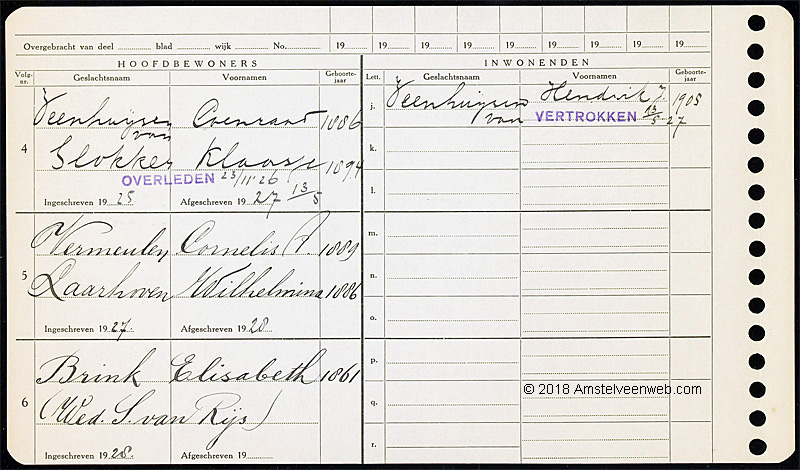 Overgebracht van deel blad wijk No. 19 19 19 19 19 19 19 19 19
HOOFDBEWONERS
Volg-nr. Geslachtsnaam Voornamen Geboorte-jaar
4 Veenhuijsen van Coenraad 1886
Slokker Klaasje 1894
OVERLEDEN 23/11 '26
Ingeschreven 1925 Afgeschreven 1927 13/5
5 Vermeulen Cornelis A. 1889
Laarhoven Wilhelmina 1886
Ingeschreven 1927. Afgeschreven 1928
6 Brink Elisabeth 1861
(Wed. S. van Rijs)
Ingeschreven 1928. Afgeschreven 19
INWONENDEN
Lett. Geslachtsnaam Voornamen Geboorte-jaar
j. Veenhuijsen van Hendrik J. 1905
VERTROKKEN 13/5-27
k.
l.
m.
n.
o.
p.
q.
r.
© 2018 Amstelveenweb.com